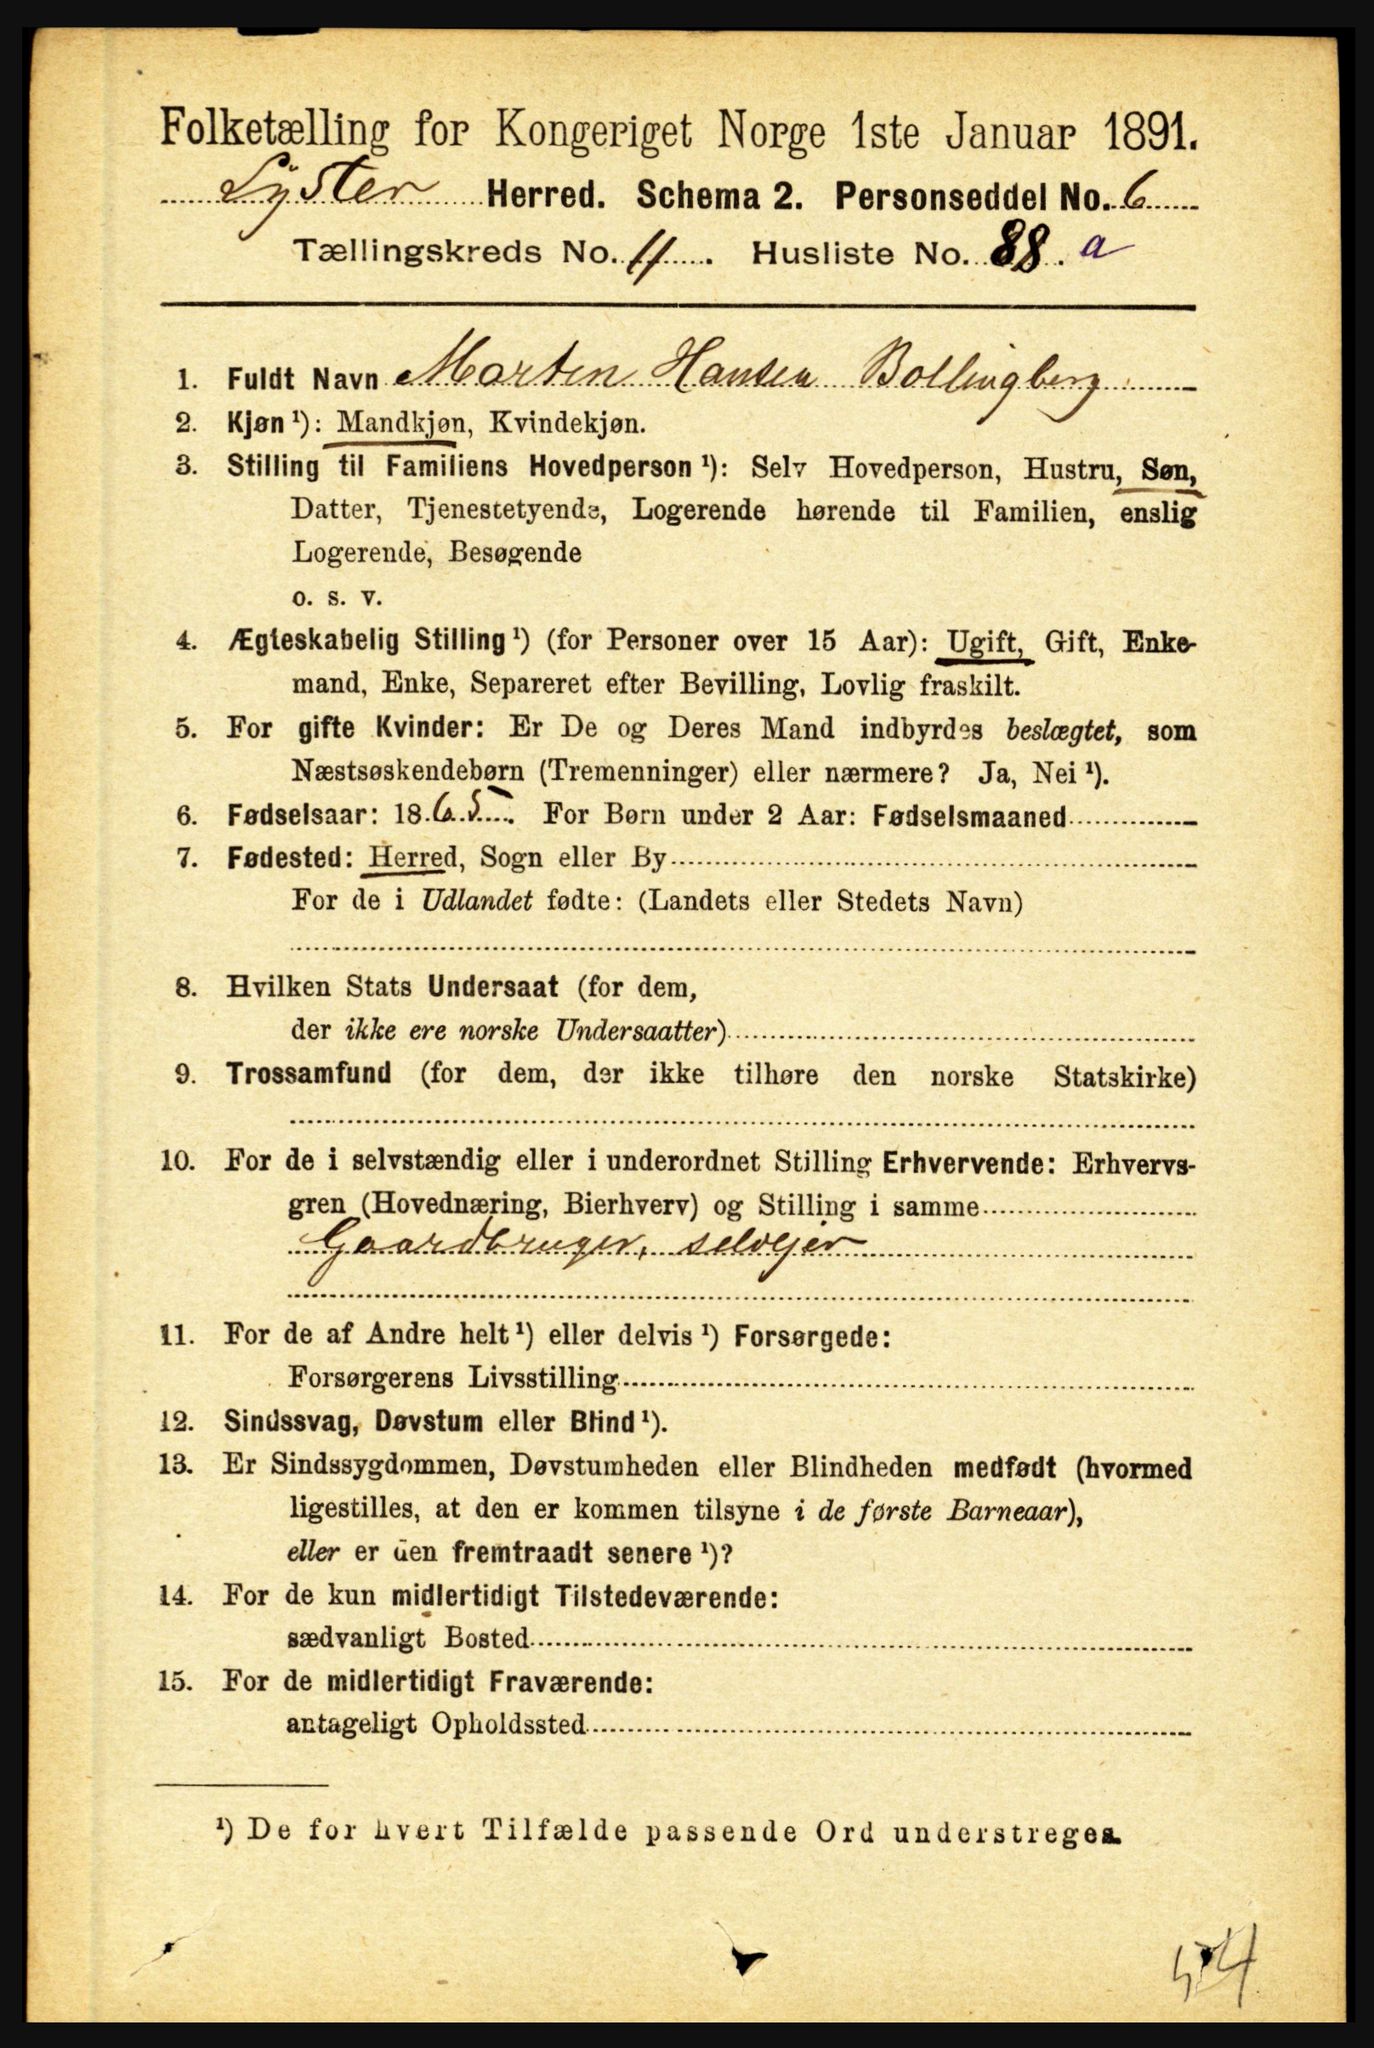 Folketælling for Kongeriget Norge 1ste Januar 1891.
Lyster Herred. Schema 2. Personseddel No. 6
Tællingskreds No. 11. Husliste No. 88. a
1. Fuldt Navn Morten Hansen Bollingberg
2. Kjøn ¹): Mandkjøn, Kvindekjøn.
3. Stilling til Familiens Hovedperson ¹): Selv Hovedperson, Hustru, Søn,
Datter, Tjenestetyende, Logerende hørende til Familien, enslig
Logerende, Besøgende
o. s. v.
4. Ægteskabelig Stilling ¹) (for Personer over 15 Aar): Ugift, Gift, Enke-
mand, Enke, Separeret efter Bevilling, Lovlig fraskilt.
5. For gifte Kvinder: Er De og Deres Mand indbyrdes beslægtet, som
Næstsøskendebørn (Tremenninger) eller nærmere? Ja, Nei ¹).
6. Fødselsaar: 1865. For Børn under 2 Aar: Fødselsmaaned
7. Fødested: Herred, Sogn eller By
For de i Udlandet fødte: (Landets eller Stedets Navn)
8. Hvilken Stats Undersaat (for dem,
der ikke ere norske Undersaatter)
9. Trossamfund (for dem, der ikke tilhøre den norske Statskirke)
10. For de i selvstændig eller i underordnet Stilling Erhvervende: Erhvervs-
gren (Hovednæring, Bierhverv) og Stilling i samme
Gaardbruger, selvejer
11. For de af Andre helt ¹) eller delvis ¹) Forsørgede:
Forsørgerens Livsstilling
12. Sindssvag, Døvstum eller Blind ¹).
13. Er Sindssygdommen, Døvstumheden eller Blindheden medfødt (hvormed
ligestilles, at den er kommen tilsyne i de første Barneaar),
eller er den fremtraadt senere ¹)?
14. For de kun midlertidigt Tilstedeværende:
sædvanligt Bosted
15. For de midlertidigt Fraværende:
antageligt Opholdssted
¹) De for hvert Tilfælde passende Ord understreges.
54